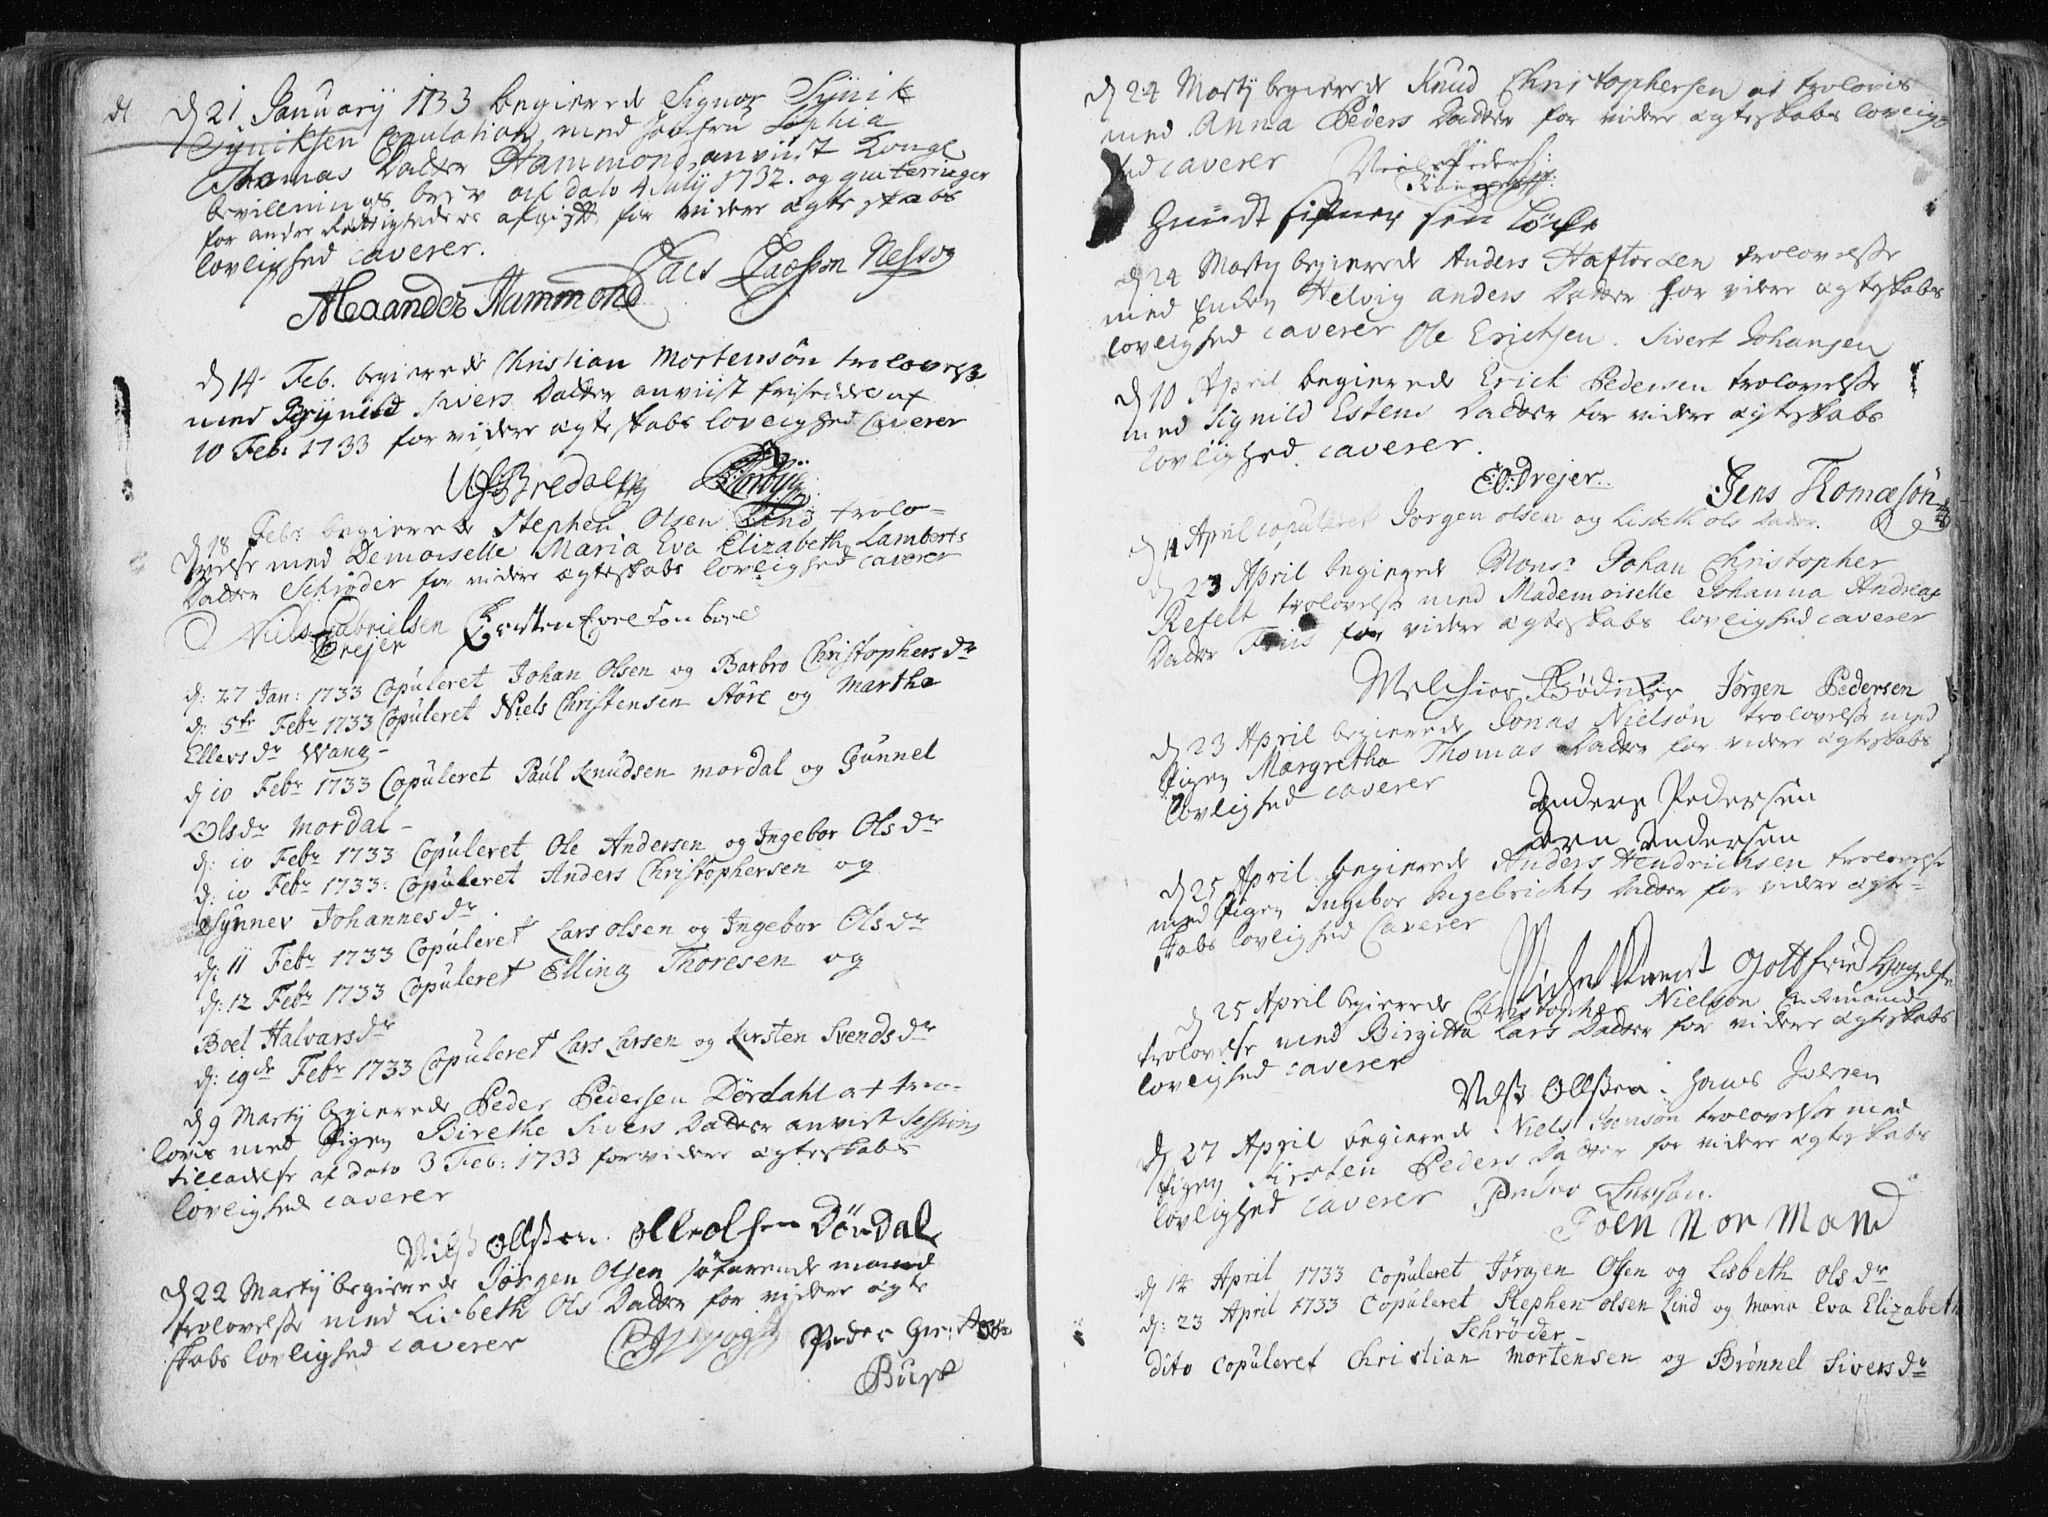 d 21 January 1733 begierede Signor Synik
Syniksen Copulation med Jomfru Sophia
Thomas Datter Hammond, anviist Kongl
bevillnings brev af dato 4 July 1732. og quiteringer
for andre Rettighederes afgift for videre ægteskabs
lovlighed caverer.
Alexander Hammond
d 14 Feb. begierede Christian Mortensøn trolovelse
med Brynild Sivers Datter anviist friseddel af
10 Feb: 1733 for videre ægteskabs lovlighed Caverer
d 18 Febr begierede Stephen Olsen Lind trolo-
velse med Demoiselle Maria Eva Elizabeth Lamberts
Datter Schrøder for videre ægteskabs lovlighed caverer
Niels Gabrielsen
Drejer
d: 27 Jan: 1733 Copuleret Johan Olsen og Barbro Christophersdr
d: 5te Febr 1733 Copuleret Niels Christensen Støre og Martha
Ellersdr Wang-
d 10 Febr 1733 Copuleret Paul Knudsen mordal og Gunnel
Olsdr Mordal-
d: 10 Febr 1733 Copuleret Ole Andersen og Ingebor Olsdr
d: 10 Febr 1733: Copuleret Anders Christophersen og
Synnev Johannesdr
d: 11 Febr 1733 Copuleret Lars Olsen og Ingebor Olsdr
d: 12 Febr 1733 Copuleret Elling Thoresen og
Boel Halvarsdr
d: 19de Febr 1733 Copuleret Lars Larsen og Kirsten Svendsdr
d 9 Martij begierede Peder Pedersen Dørdahl at tro-
lovis med Pigen Birethe Sivers Datter anvist Sessions
tilladelse af dato 3 Feb: 1733 for videre ægteskabs
lovlighed caverer
Nilß Ollßen. Olle olsen Dördal
d 22 Martij begierede Jørgen Olsen søfarende mand
trolovelse med Lisbeth Ols Datter for videre ægte
skabs lovlighed caverer
d 24 Marty begierede Knud Christophersen at trolovis
med Anna Peders Datter for videre ægteskabs lovlig-
hed caverer
d 24 Marty begierede Anders Haftorsen trolovelse
med Enken Helvig anders Datter for videre ægteskabs
lovlighed caverer Ole Erichsen. Sivert Johansen
d 10 April begierede Erick Pedersen trolovelse
med Signild Estens Datter for videre ægteskabs
lovlighed caverer.
Drejer. Jens Thomæsøn
d 14 April copuleret Jørgen olsen og Lisbeth ols Datter.
d 23 April begierede Monsr Johan Christopher
Refelt trolovelse med Mademoiselle Johanna Andreas
Datter Friis for videre ægteskabs lovlighed caverer
Melchior Bødtker Jørgen Pedersen
d 23 April begierede Jonas Nielsøn trolovelse med
Pigen Margretha Thomas Datter for videre ægteskabs
lovlighed caverer
Anders Pedersen
Andersen
d 25 April begierede Anders Hendrichsen trolovelse
med Pigen Ingebor Ingebrichts Datter for videre ægte-
skabs lovlighed Caverer
Gottfried
d 25 April begierede Christopher Nielsøn Enkemand
trolovelse med Birgitta Lars Datter for videre ægteskabs
lovlighed caverer
Nilß Ollßen. Hans
d 27 April begierede Niels trolovelse med
Pigen Kirsten Peders Datter for videre ægteskabs
lovlighed caverer
Joen Nor Mand
d 14 April 1733 Copuleret Jørgen Olsen og Lisbeth Olsdr
d: 23 April 1733 Copuleret Stephen Olsen Lind og Maria Eva Elizabeth
Schrøder-
dito Copuleret Christian Mortensen og Brønnel Siversdr